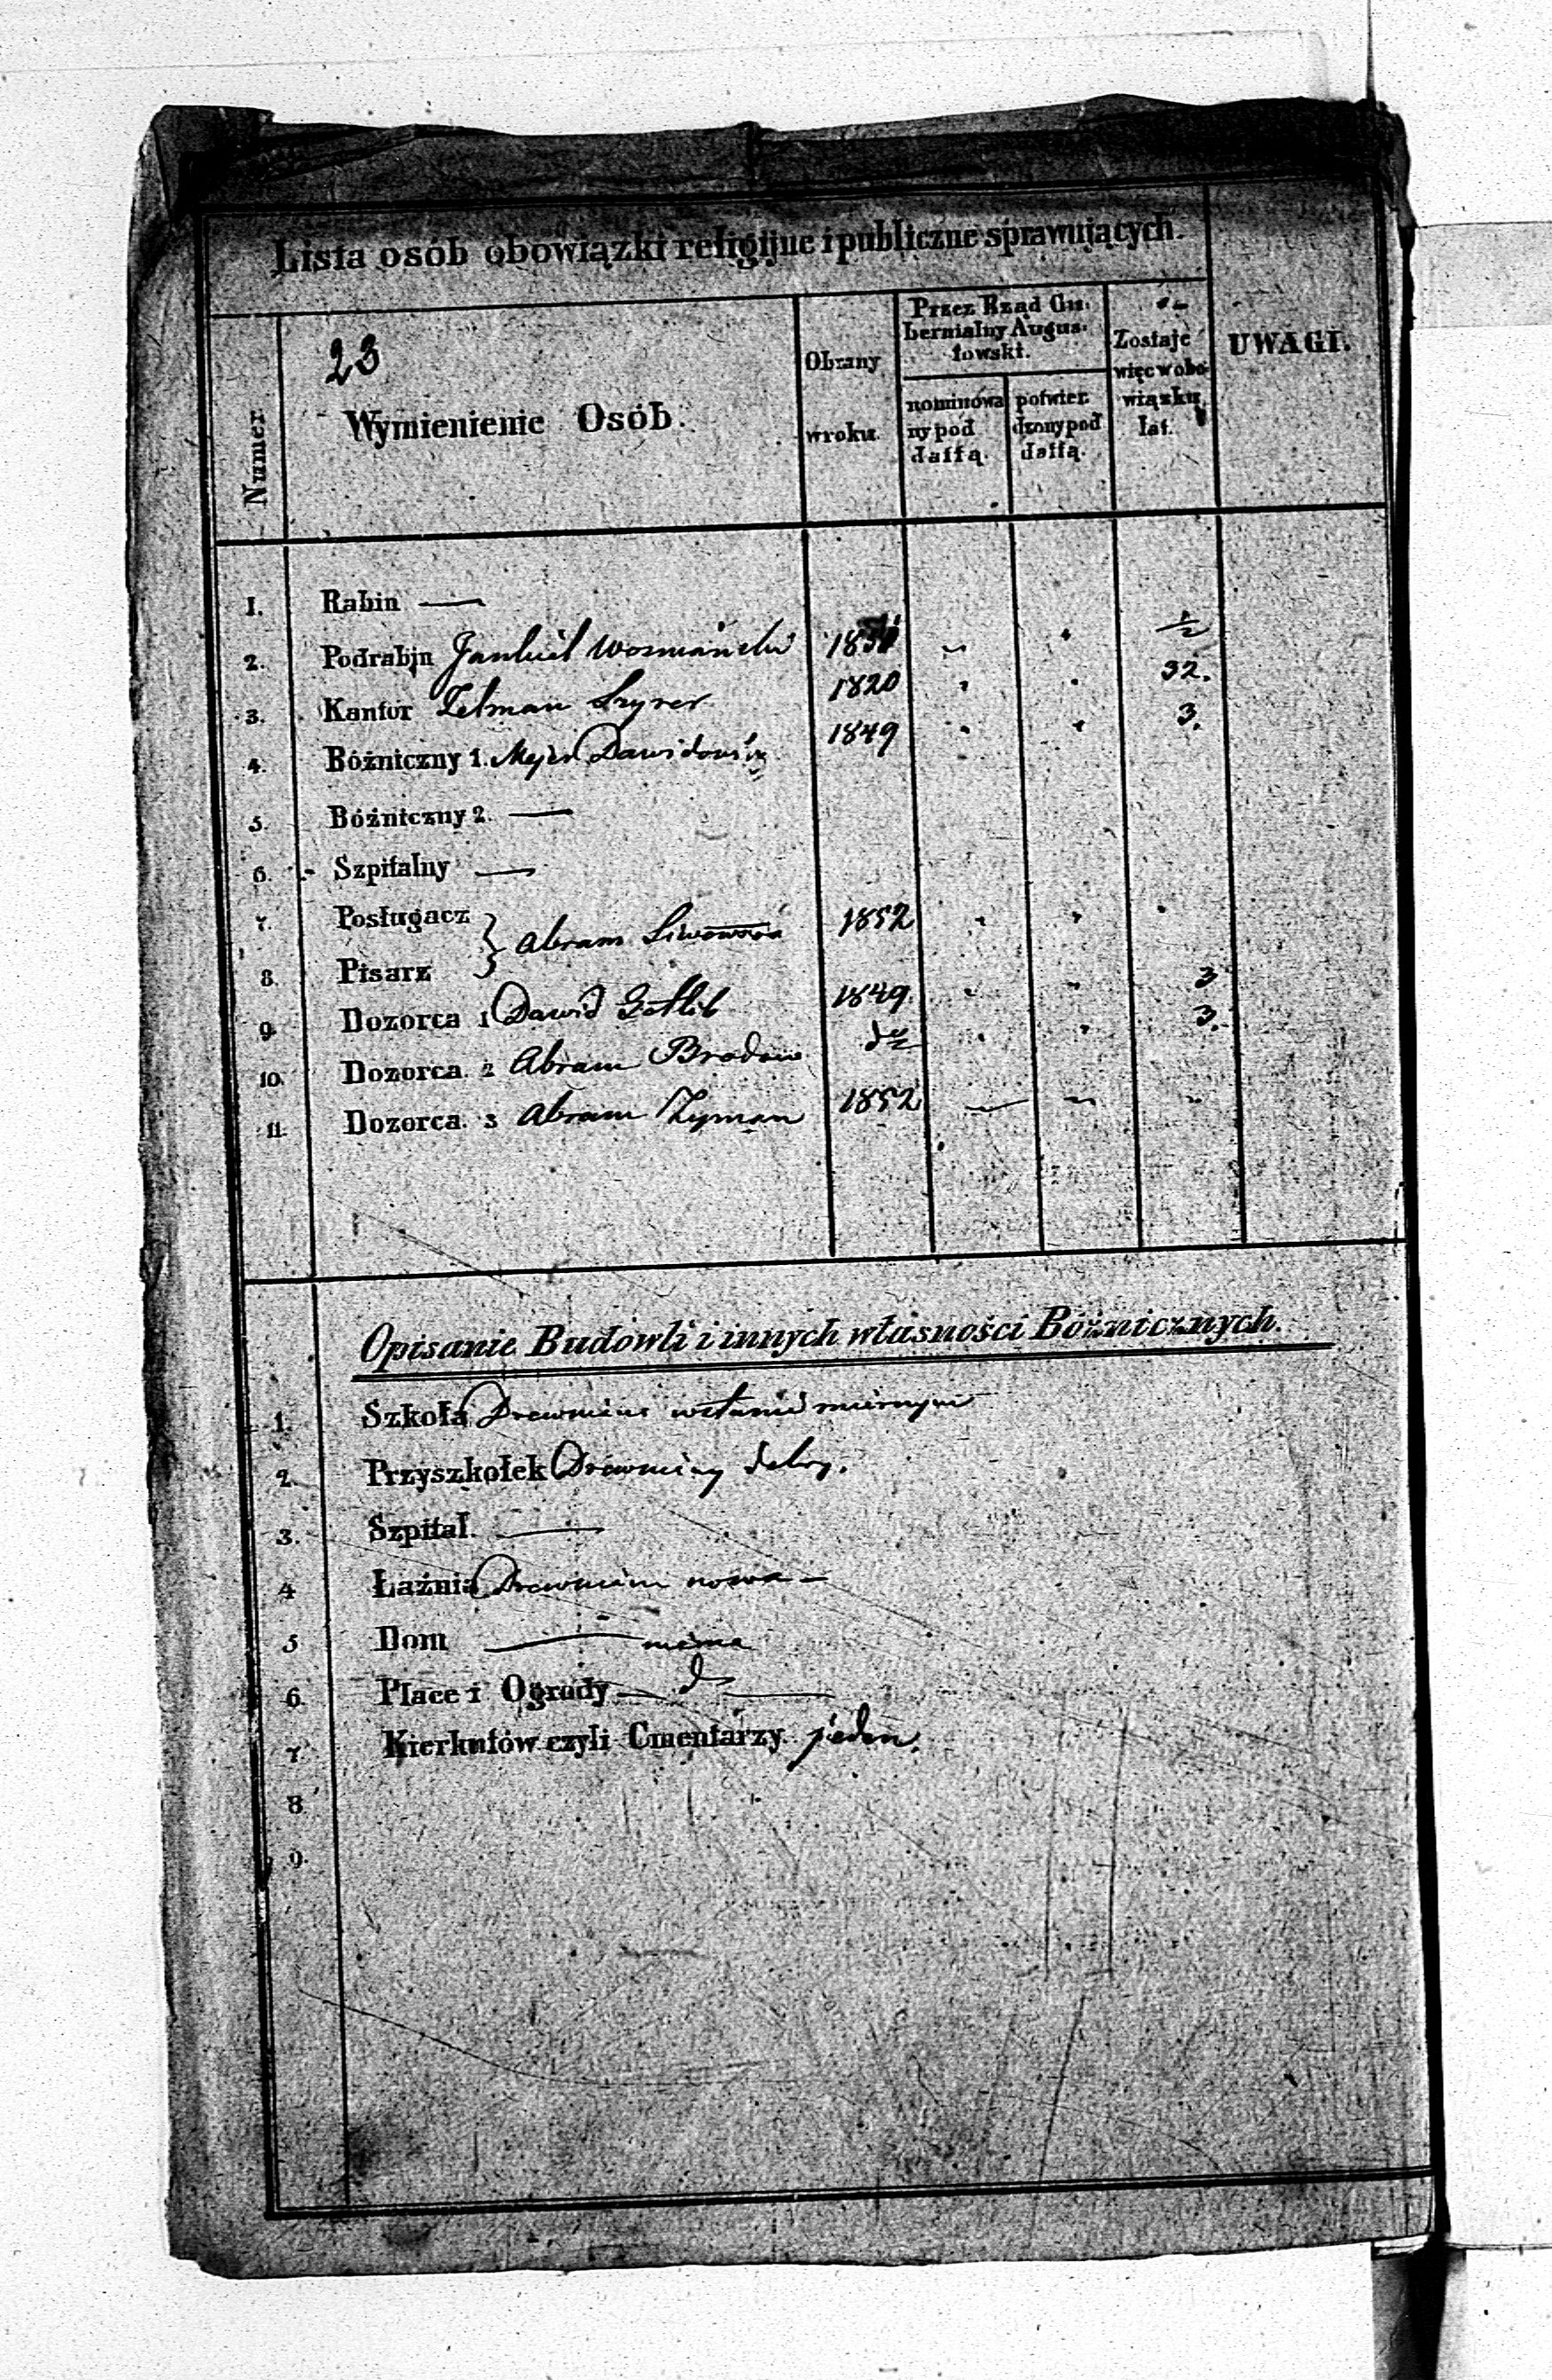 Lista osób obowiązki religijne i publiczne sprawujących.
Numer
23
Wymienienie Osób.
Obrany
w roku.
Przez Rząd Gu-
bernialny Augus-
towski.
nominowa
ny pod
dattą.
potwier
dzony pod
dattą.
Zostaje
więc w obo-
wiązku
lat.
UWAGI.
1. Rabin —
2. Podrabin Jankiel 18 ½
3. Kantor Zelman Szyrer 1820 32.
4. Bóżniczny 1. Mejer Dawidowicz 1849 3.
5. Bóżniczny 2. —
6. Szpitalny —
7. Posługacz } Abram 1852
8. Pisarz
9. Dozorca 1 Dawid Gotlib 1849. 3
10. Dozorca 2 Abram do 3.
11. Dozorca 3 Abram Zyman 1852
Opisanie Budowli i innych własności Bóżnicznych.
1. Szkoła Drewniana w stanie miernym
2. Przyszkołek Drewniany dobry.
3. Szpital. —
4 Łaźnia Drewniana nowa —
5 Dom — niema
6. Place i Ogrody — d —
7 Kierkutów czyli Cmentarzy jeden.
8
9.